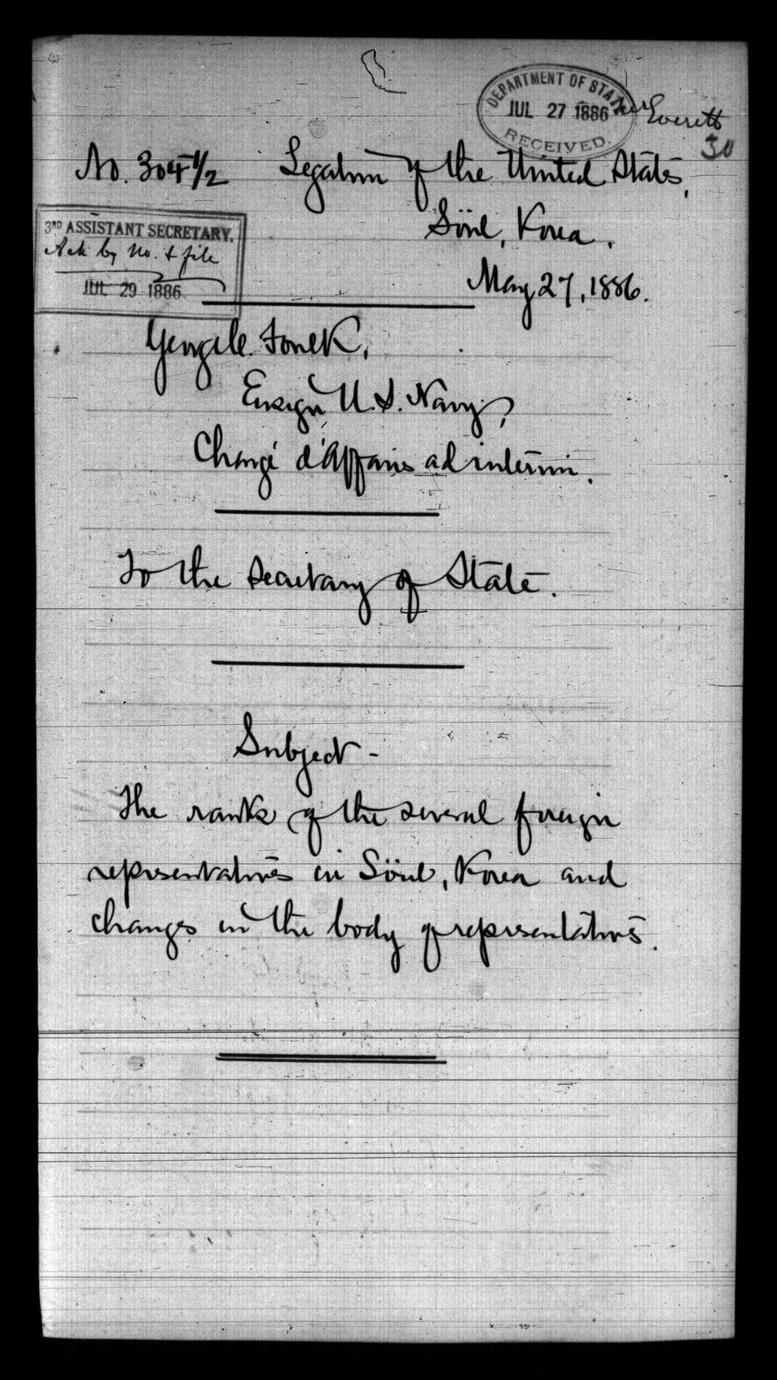 DEPARTMENT OF STATE
JUL 27 1886
RECEIVED.
Mr Everett
30
No. 304 1/2 Legation of the United States,
Söul, Korea.
3RD ASSISTANT SECRETARY.
Ack by No. & file
JUL 29 1886
May 27, 1886.
George C. Foulk,
Ensign, U.S. Navy,
Chargé d'Affaires ad interim.
To the Secretary of State.
Subject -
The ranks of the several foreign
representatives in Söul, Korea and
changes in the body of representatives.